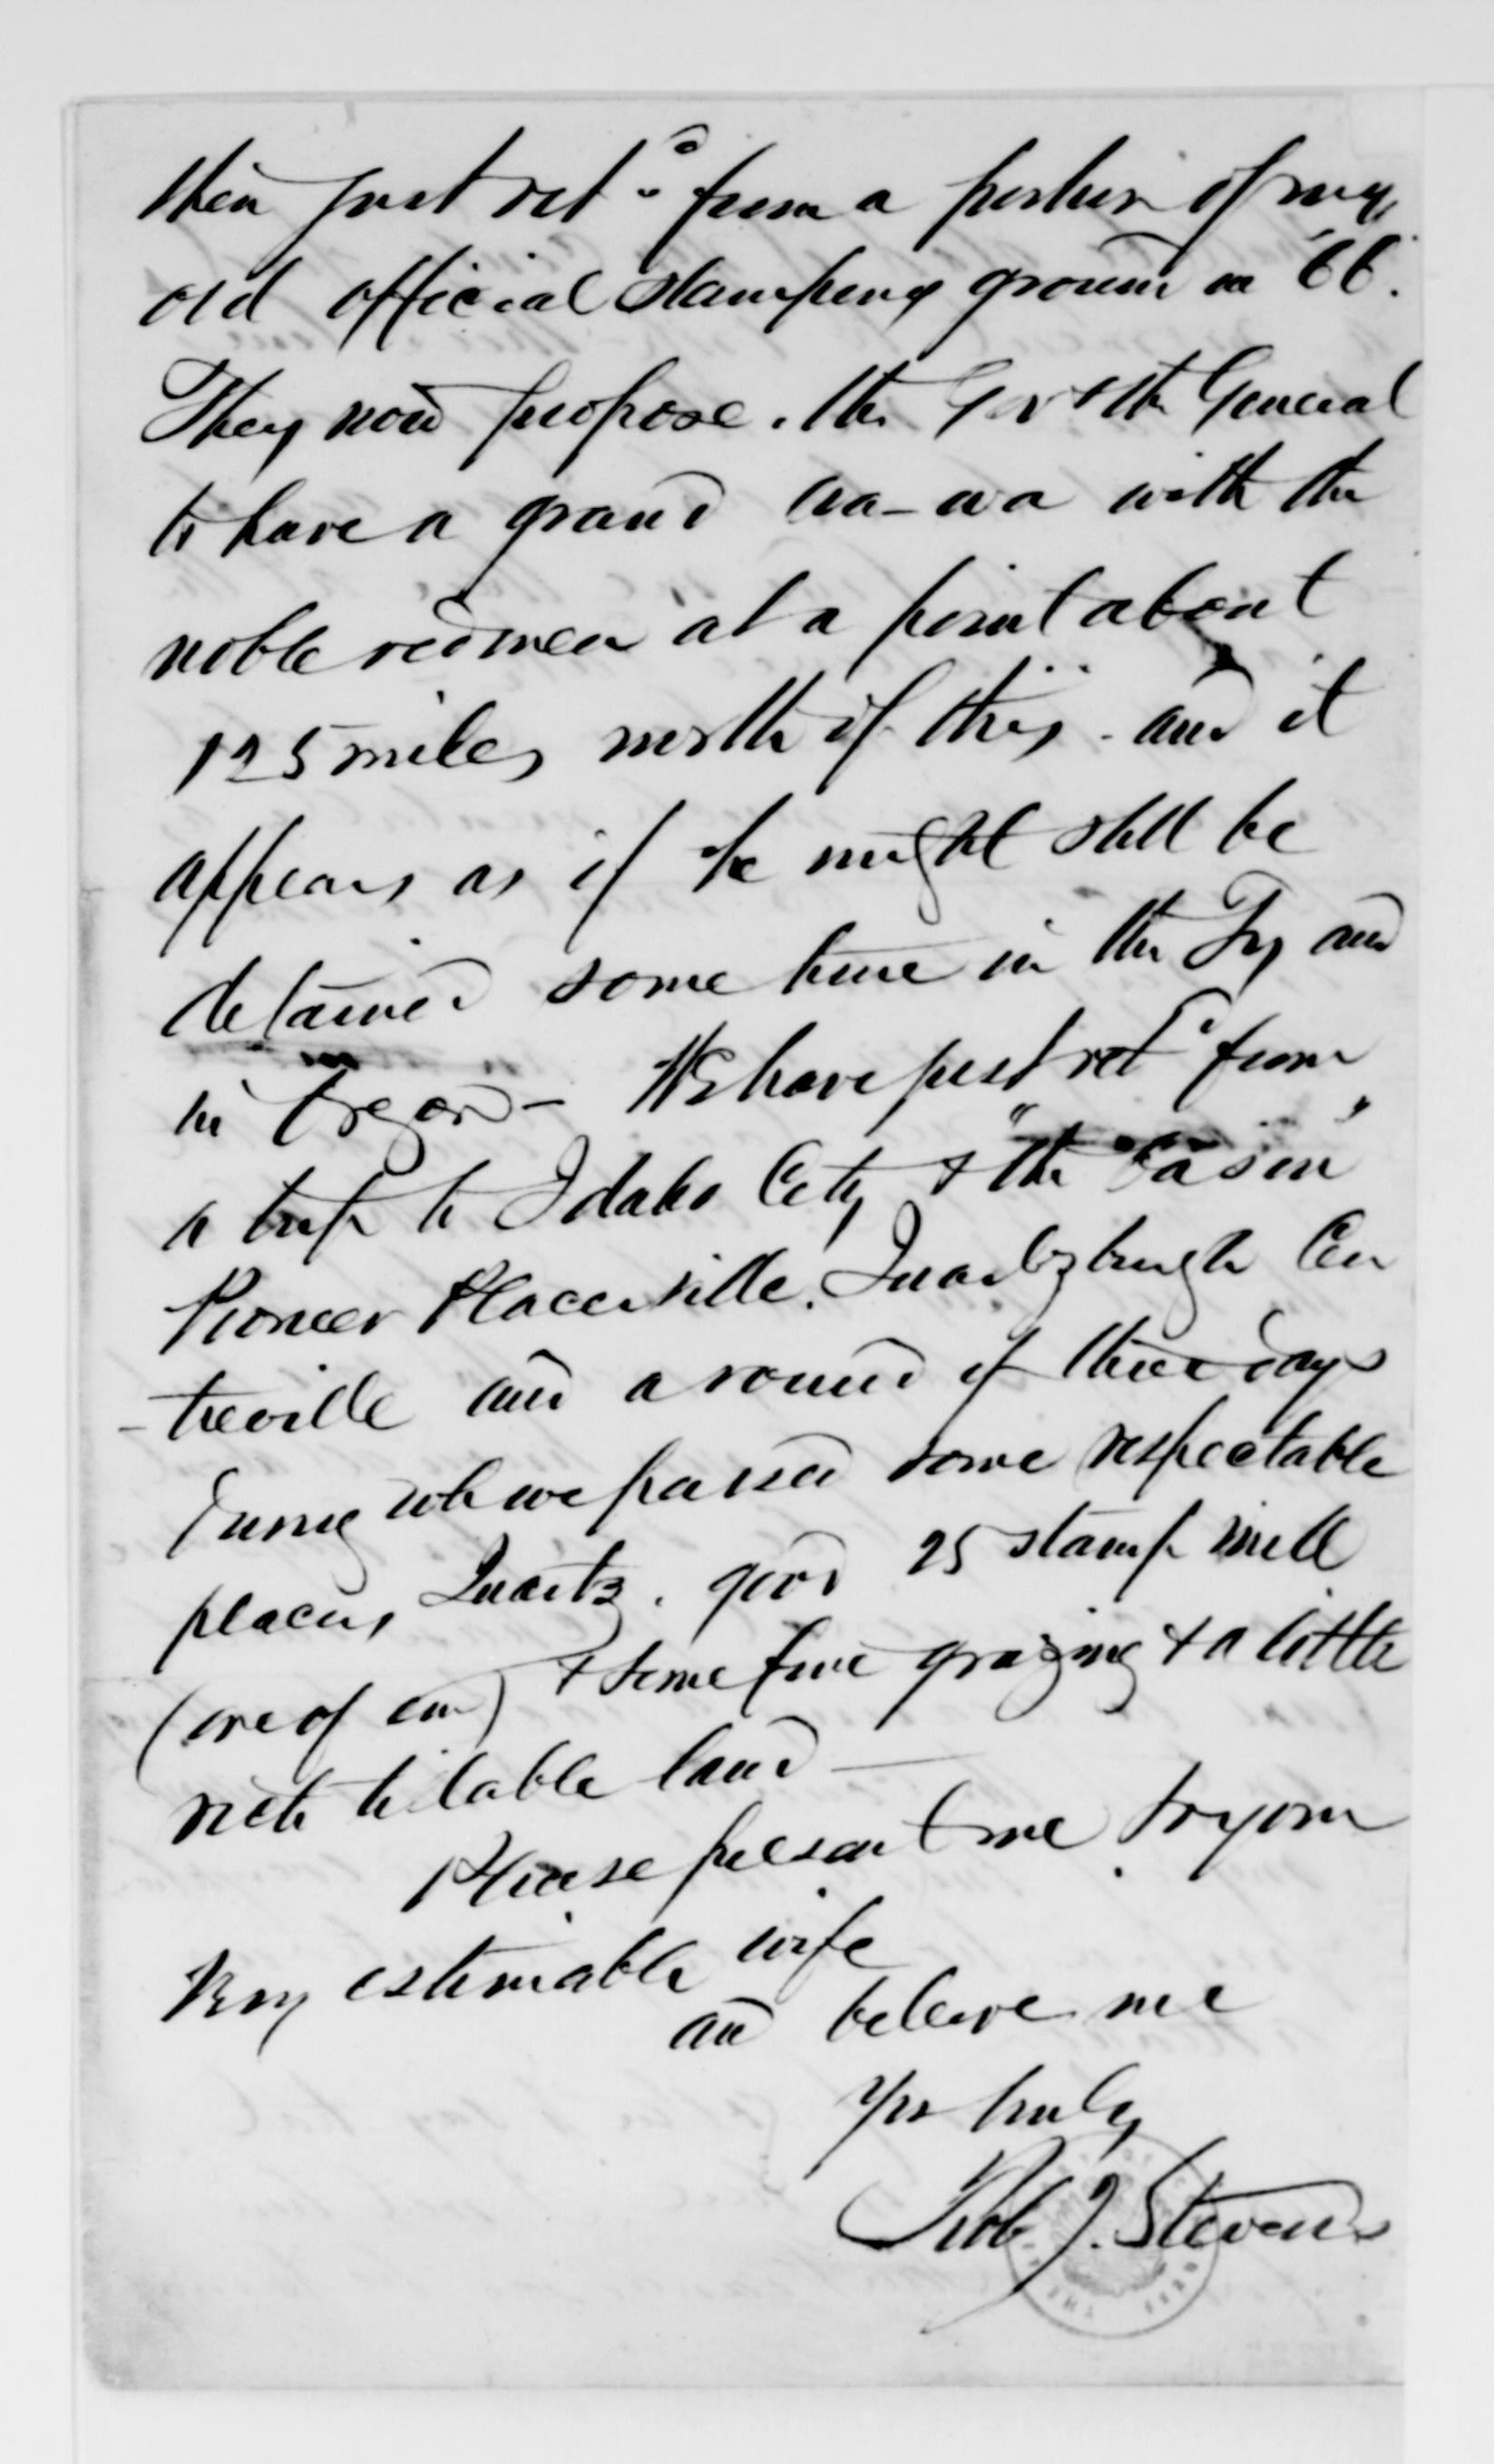 then just ret'd from a portion of my
old official stamping ground in '66.
They now propose. the Gov & the General
to have a grand wa-wa with the
noble redmen at a point about
125 miles north of this. and it
appears as if he might still be
detained some time in the Ty and
in Oregon - We have just ret'd from
a trip to Idaho City & "the Basin"
Pioneer Placerville. Quartzburgh Cen
-treville and a round of three days
during wh we passed some respectable
placers, Quartz. good 25 stamp mill
(one of em) & some fine grazing & a little
rich tilable land —
Please present me to your
Very estimable wife
and believe me
Yrs truly
Rob J. Stevens